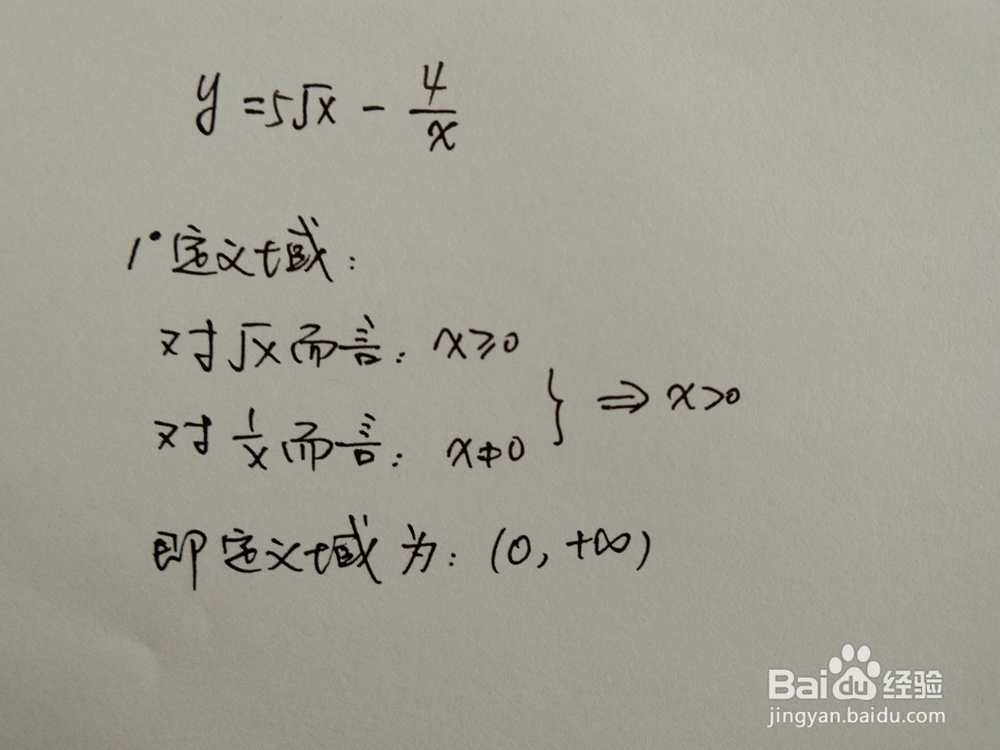 y=5√x - 4/x
1° 定义域:
对√x而言: x≥0
对1/x而言: x≠0
} ⇒ x>0
即定义域为: (0, +∞)
Baidu经验
jingyan.baidu.com